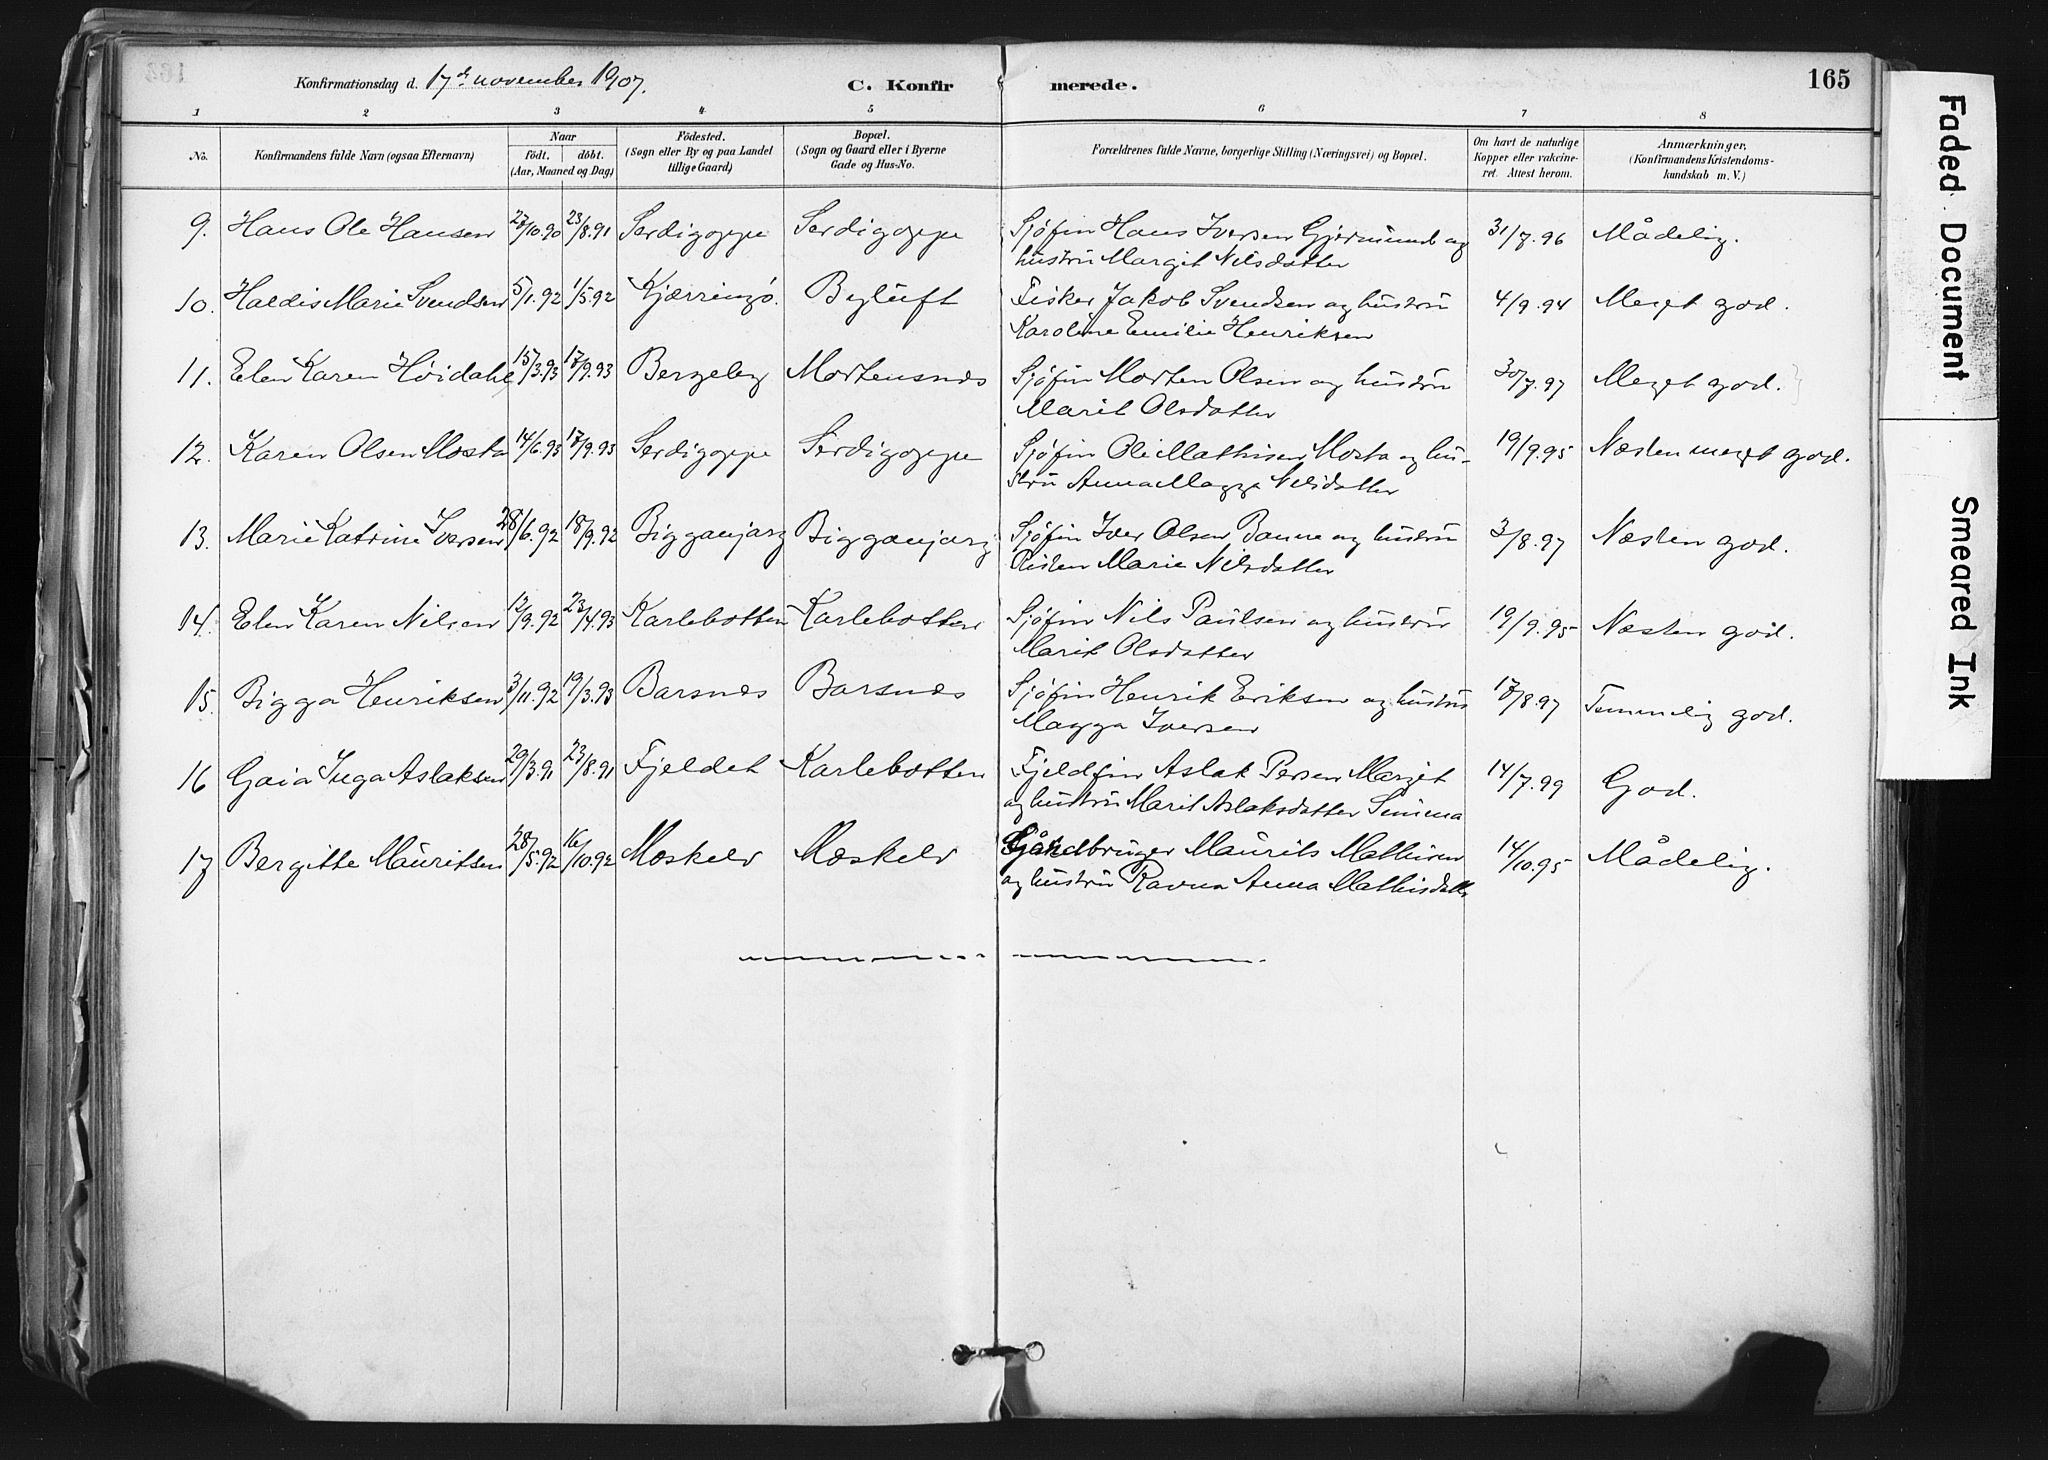 Konfirmationsdag d. 17de november 1907.
C. Konfirmerede.
165
1 2 3 4 5 6 7 8
No.
Konfirmandens fulde Navn (ogsaa Efternavn)
Naar
födt. döbt.
(Aar, Maaned og Dag)
Födested.
(Sogn eller By og paa Landet
tillige Gaard)
Bopæl.
(Sogn og Gaard eller i Byerne
Gade og Hus-No.
Forældrenes fulde Navne, borgerlige Stilling (Næringsvei) og Bopæl.
Om havt de naturlige
Kopper eller vakcine-
ret. Attest herom.
Anmærkninger.
(Konfirmandens Kristendoms-
kundskab m. V.)
9. Hans Ole Hansen 27/10.90 23/8.91 Serdigoppe Serdigoppe Sjøfin Hans Iversen Gjermund og 31/7.96 Mådelig.
hustru Margit Nilsdatter
10. Haldis Marie Svendsen 5/1.92 1/5.92 Kjærringø. Byluft Fisker Jakob Svendsen og hustru 4/9.94 Meget god.
Karoline Emilie Henriksen
11. Elen Karen Høidahl 15/3.93 17/9.93 Bergeby Mortensnæs Sjøfin Morten Olsen og hustru 30/7.97 Meget god.
Marit Olsdatter
12. Karen Olsen Mosta 14/6.93 17/9.93 Serdigoppe Serdigoppe Sjøfin Ole Mathisen Mosta og hu- 19/9.95 Næsten meget god.
stru Anna Magga Nilsdatter
13. Marie Katrine Iversen 28/6.92 18/9.92 Bigganjarg Bigganjarg Sjøfin Iver Olsen Banne og hustru 3/8.97 Næsten god.
Risten Marie Nilsdatter
14. Elen Karen Nilsen 12/9.92 23/4.93 Karlebotten Karlebotten Sjøfin Nils Paulsen og hustru 19/9.95 Næsten god.
Marit Olsdatter
15. Bigga Henriksen 3/11.92 19/3.93 Barsnæs Barsnæs Sjøfin Henrik Eriksen og hustru 17/8.97 Temmelig god.
Magga Iversen
16 Gaia Inga Aslaksen 29/3.91 23/8.91 Fjeldet Karlebotten Fjeldfin Aslak Persen Marget 14/7.99 God.
og hustru Marit Aslaksdatter Smuma
17 Bergitte Mauritsen 28/5.92 16/10.92 Mæskelv Mæskelv Gårdbruger Maurits Mathisen 14/10.95 Mådelig.
og hustru Ravna Anna Mathisdatt.
Faded Document
Smeared Ink